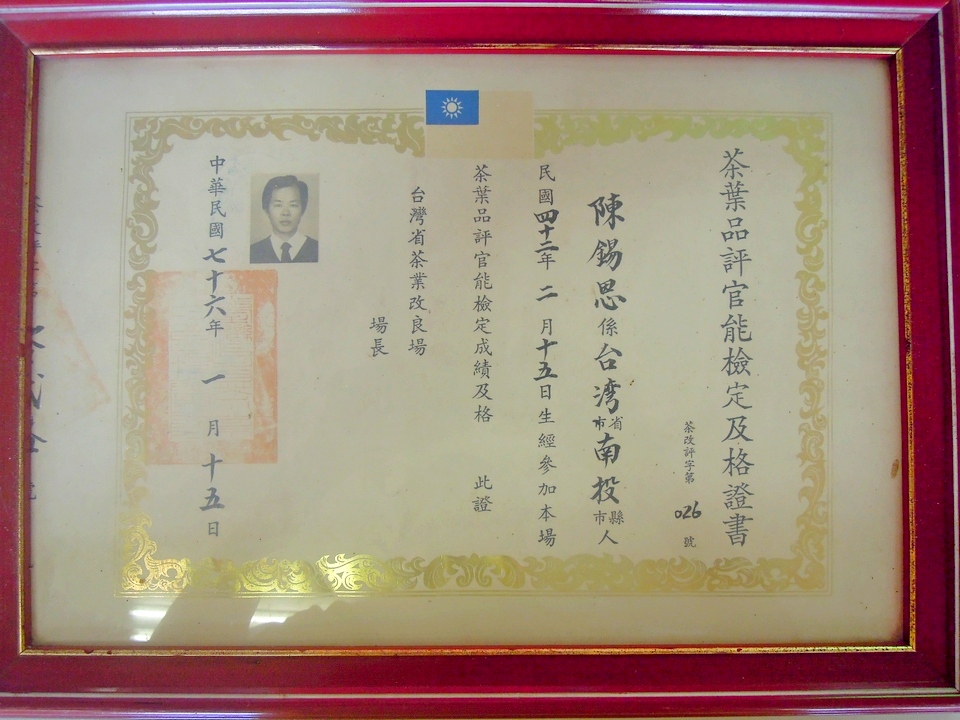 茶葉品評官能檢定及格證書
茶改評字第026號
陳錫恩係台灣省市南投縣市人
民國四十二年二月十五日生經參加本場
茶葉品評官能檢定成績及格 此證
台灣省茶業改良場
場長
中華民國七十六年一月十五日